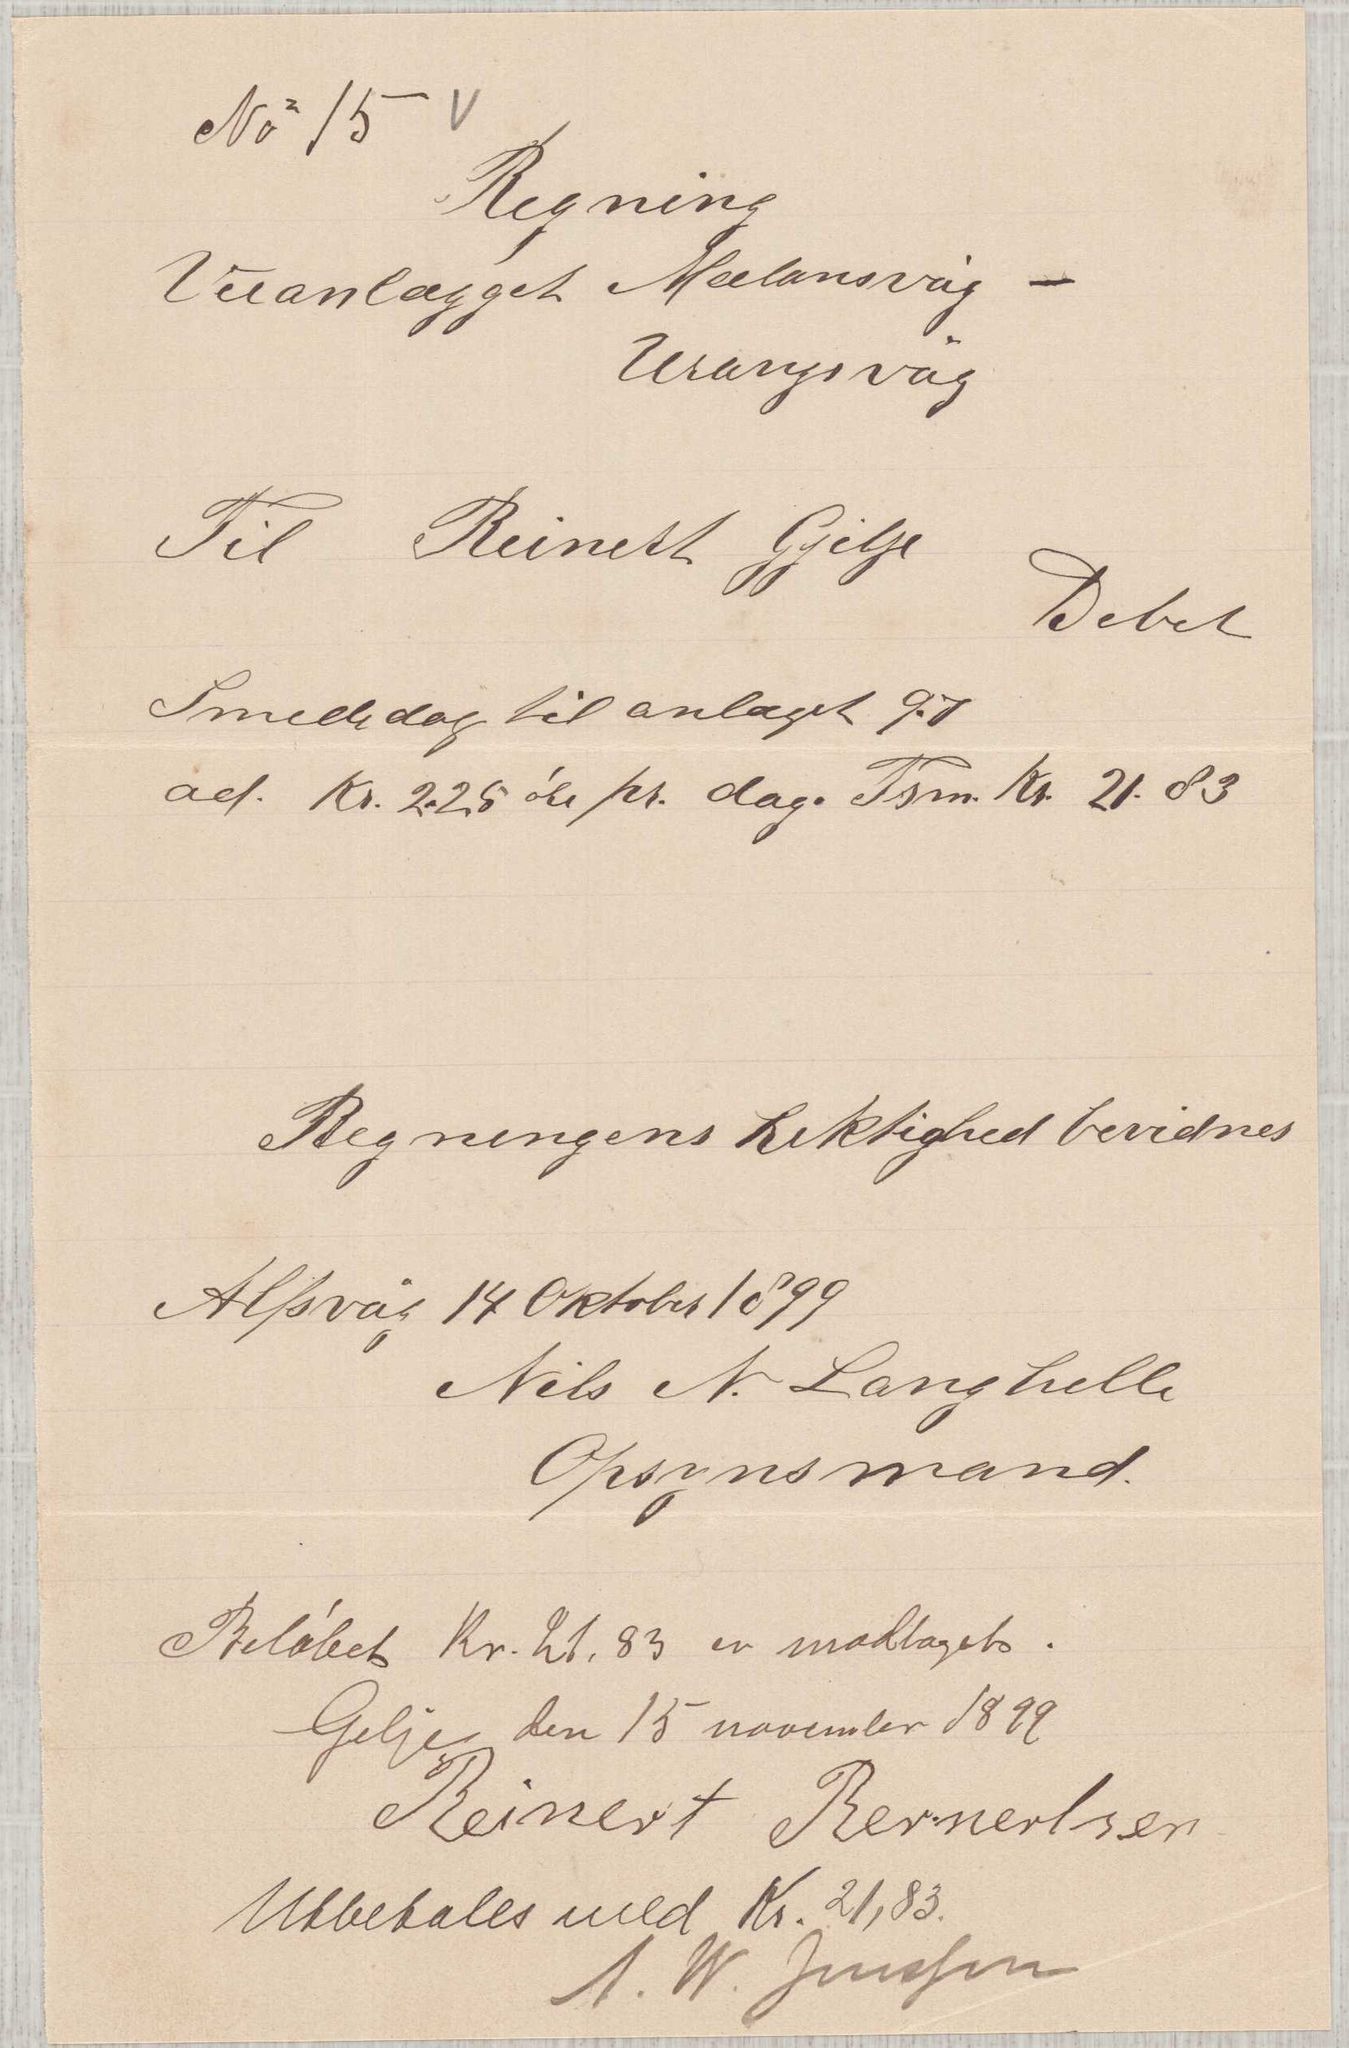 No 15 V
Regning
Veianlægget Mælansvåg -
Urangsvåg
Til Reinert Gjelje
Debet
Smededag til anlæget 9.7
ad. Kr. 2.25 øre pr. dag. Tsm. Kr. 21.83
Regningens Rektighed bevidnes
Alfsvåg 14 Oktober 1899
Nils N. Langhelle
Opsynsmand.
Beløbet Kr. 21.83 er modtaget.
Gelje den 15 november 1899
Reinert Bernertsen
Utbetales med Kr. 21,83.
A. W. Jenssen